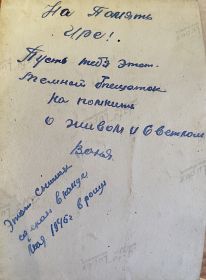 На Память
Ире!.
Пусть тебя этот
темной отпечаток
на помнит
о живом и светлом
Ваня.
Этот снимок
сделан в конце
мая 1946г в роще